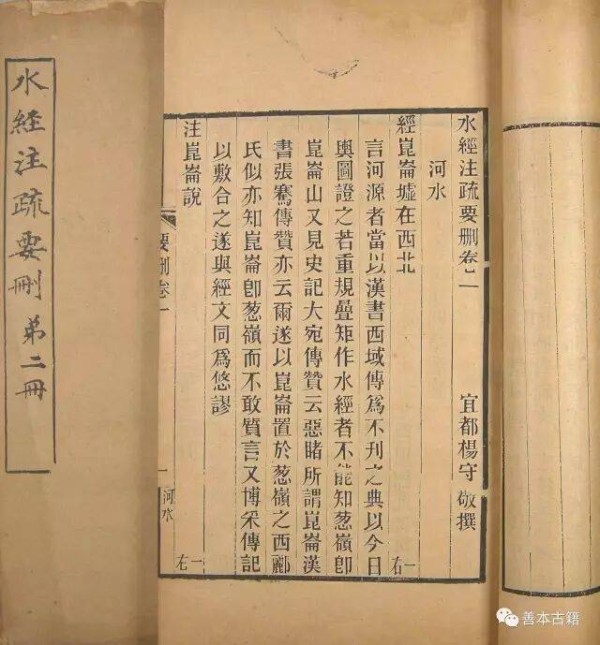 水經注疏要刪卷一 宜都楊守敬撰
一右
河水
經崑崙墟在西北
言河源者當以漢書西域傳爲不刊之典以今日
輿圖證之若重規疊矩作水經者不能知葱嶺卽
崑崙山又見史記大宛傳贊云惡睹所謂崑崙漢
書張騫傳贊亦云爾遂以崑崙置於葱嶺之西酈
氏似亦知崑崙卽葱嶺而不敢質言又博采傳記
以敷合之遂與經文同爲悠謬
注崑崙說
一左
要刪卷一 一 河水
水経注疏要刪 弟二冊
善本古籍